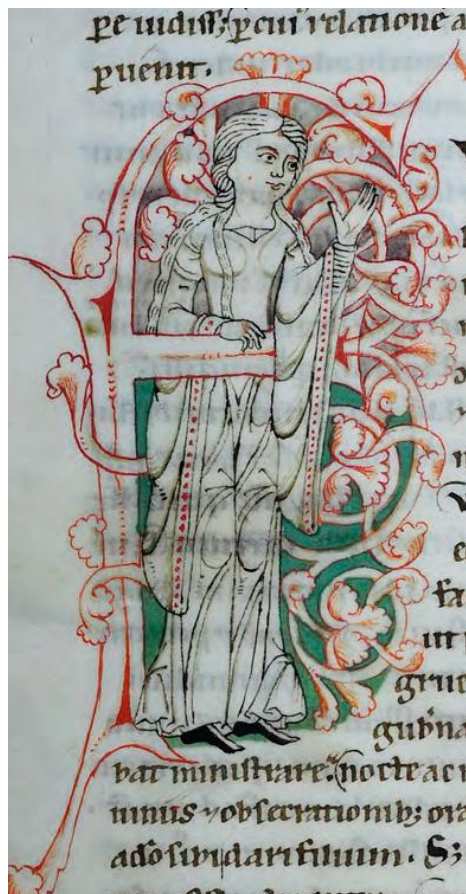 pe uidiss; ꝑ cuiꝰ relatione a
puenit.
fa
ut
grue
gub̄na
bat ministrare. nocte ac
iuniis ⁊ obsecrationib; ora
a dõ s̄ dari filium. S;